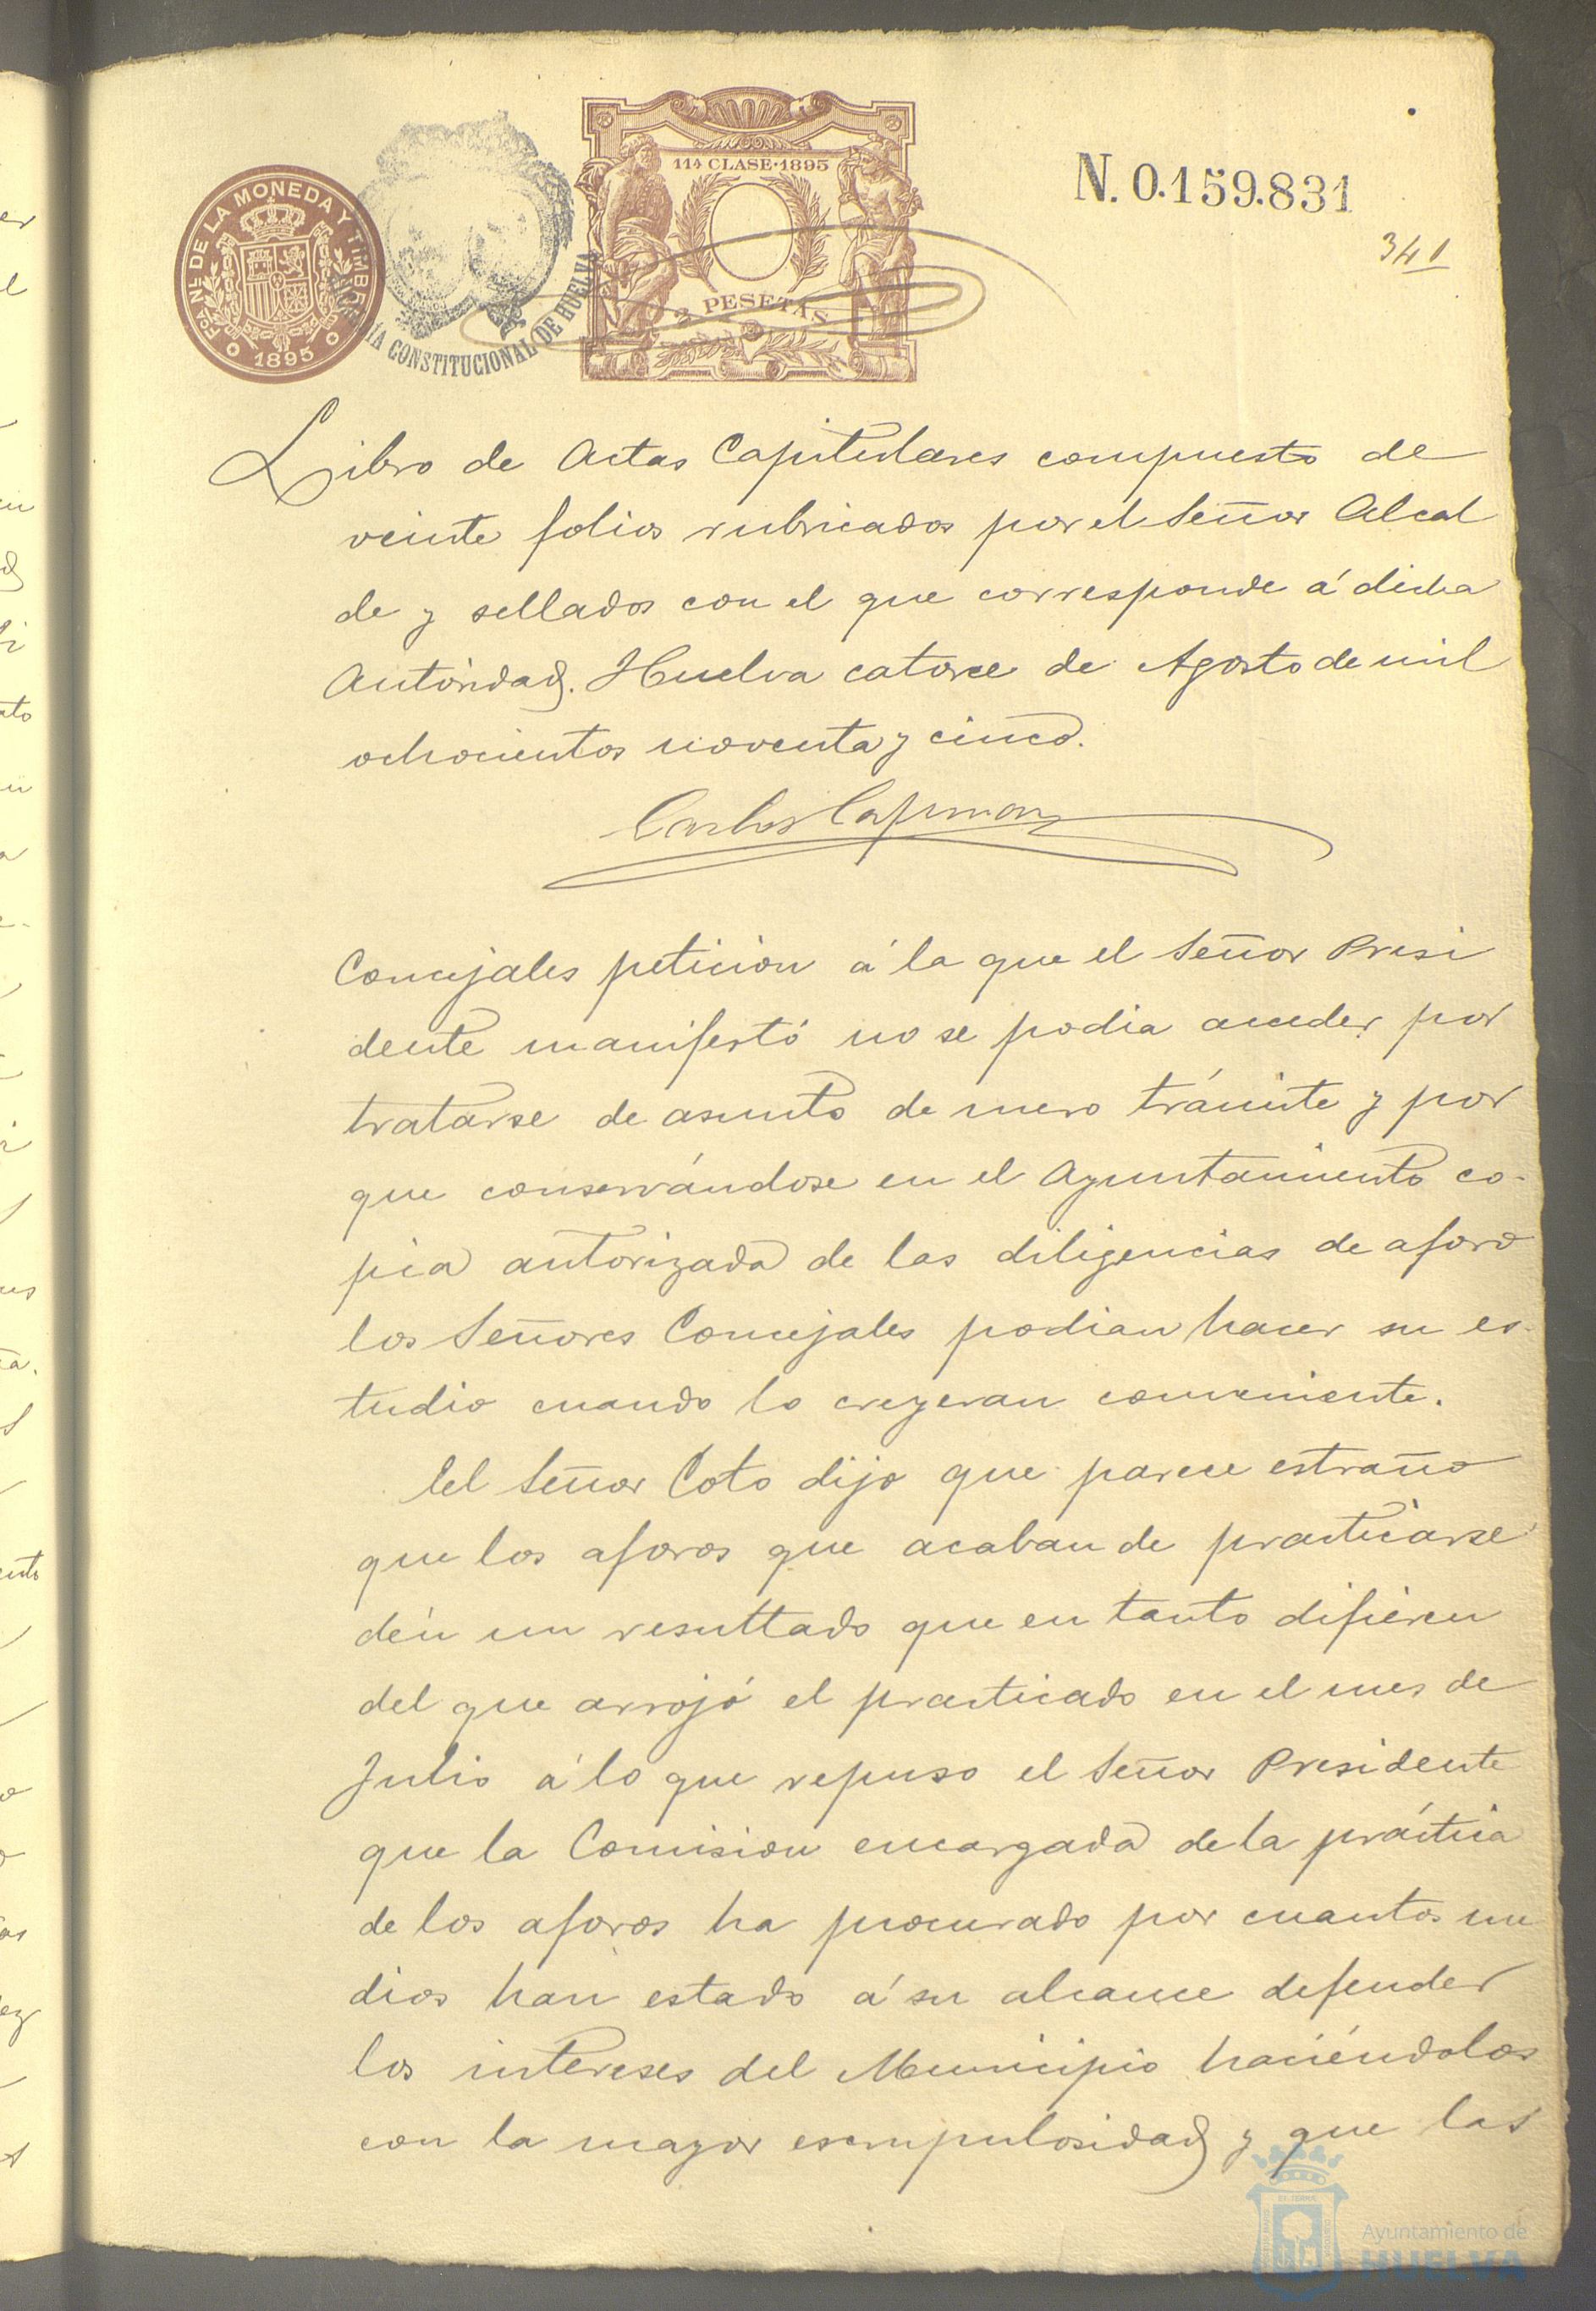 FCA NL DE LA MONEDA Y TIMBRE
1895
ÍA CONSTITUCIONAL DE HUELVA
11ª CLASE·1895
2 PESETAS
N. 0.159.831
341
Libro de Actas Capitulares compuesto de
veinte folios rubricados por el Señor Alcal
de y sellados con el que corresponde á dicha
Autoridad. Huelva catorce de Agosto de mil
ochocientos noventa y cinco.
Carlos
Concejales peticion á la que el Señor Presi
dente manifestó no se podia acceder por
tratarse de asunto de mero trámite y por
que conservándose en el Ayuntamiento co-
pia autorizada de las diligencias de aforo
los Señores Concejales podian hacer su es-
tudio cuando lo creyeran conveniente.
El Señor Coto dijo que parece estraño
que los aforos que acaban de practicarse
dén un resultado que en tanto difieren
del que arrojó el practicado en el mes de
Julio á lo que repuso el Señor Presidente
que la Comision encargada de la práctica
de los aforos ha procurado por cuantos me
dios han estado á su alcance defender
los intereses del Municipio haciéndolos
con la mayor escrupulosidad y que las
Ayuntamiento de
HUELVA